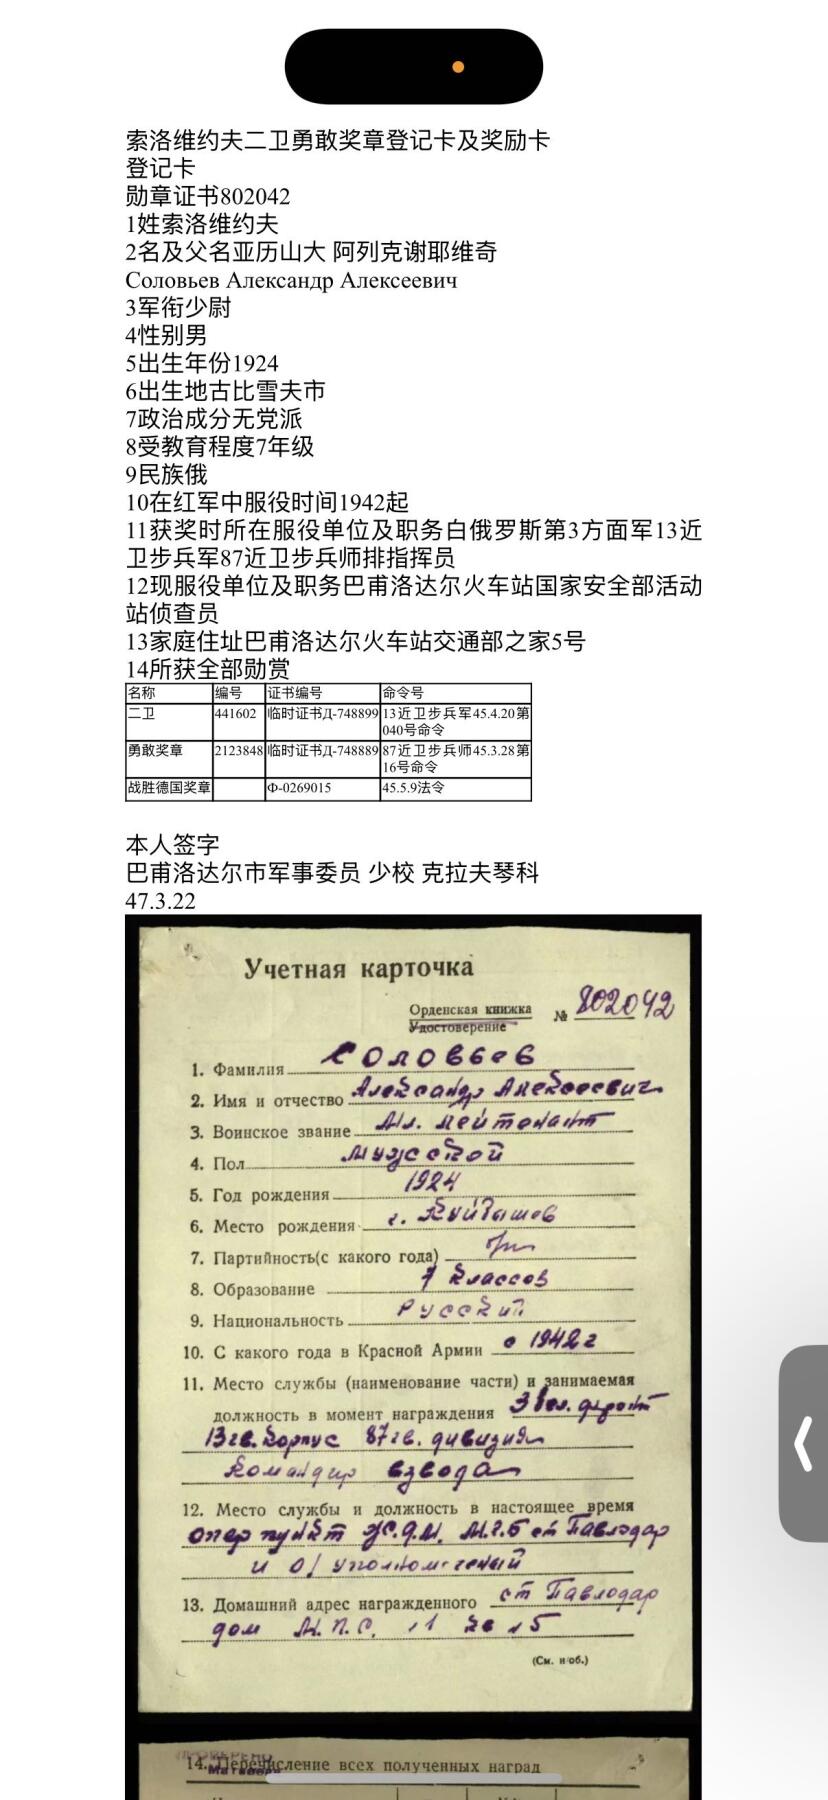 索洛维约夫二卫勇敢奖章登记卡及奖励卡
登记卡
勋章证书802042
1姓索洛维约夫
2名及父名亚历山大 阿列克谢耶维奇
Соловьев Александр Алексеевич
3军衔少尉
4性别男
5出生年份1924
6出生地古比雪夫市
7政治成分无党派
8受教育程度7年级
9民族俄
10在红军中服役时间1942起
11获奖时所在服役单位及职务白俄罗斯第3方面军13近
卫步兵军87近卫步兵师排指挥员
12现服役单位及职务巴甫洛达尔火车站国家安全部活动
站侦查员
13家庭住址巴甫洛达尔火车站交通部之家5号
14所获全部勋赏
名称 编号 证书编号 命令号
二卫 441602 临时证书Д-748899 13近卫步兵军45.4.20第
040号命令
勇敢奖章 2123848 临时证书Д-748889 87近卫步兵师45.3.28第
16号命令
战胜德国奖章 Ф-0269015 45.5.9法令
本人签字
巴甫洛达尔市军事委员 少校 克拉夫琴科
47.3.22
Учетная карточка
Орденская книжка
Удостоверение № 802042
1. Фамилия Соловьев
2. Имя и отчество Александр Алексеевич
3. Воинское звание Мл. лейтенант
4. Пол мужской
5. Год рождения 1924
6. Место рождения г. Куйбышев
7. Партийность(с какого года)
8. Образование 7 классов
9. Национальность Русский
10. С какого года в Красной Армии с 1942 г
11. Место службы (наименование части) и занимаемая
должность в момент награждения 3 Бел. фронт
13 гв. корпус 87 гв. дивизия
Командир взвода
12. Место службы и должность в настоящее время
опер пункт М.Г.Б ст Павлодар
уполномоченный
13. Домашний адрес награжденного ст Павлодар
дом М.П.С. 5
(См. н/об.)
14. Перечисление всех полученных наград